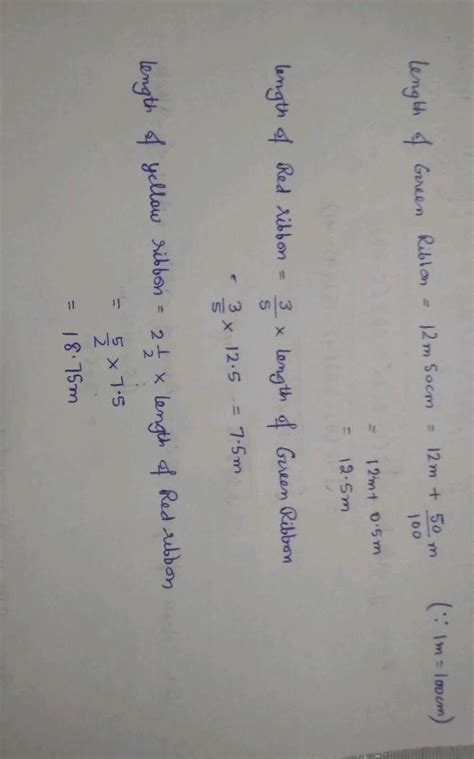 length of Green Ribbon = 12m 50cm = 12m + 50/100 m (∵ 1m = 100cm)
= 12m + 0.5m
= 12.5m
length of Red ribbon = 3/5 × length of Green Ribbon
= 3/5 × 12.5 = 7.5m
length of yellow ribbon = 2 1/2 × length of Red ribbon
= 5/2 × 7.5
= 18.75m